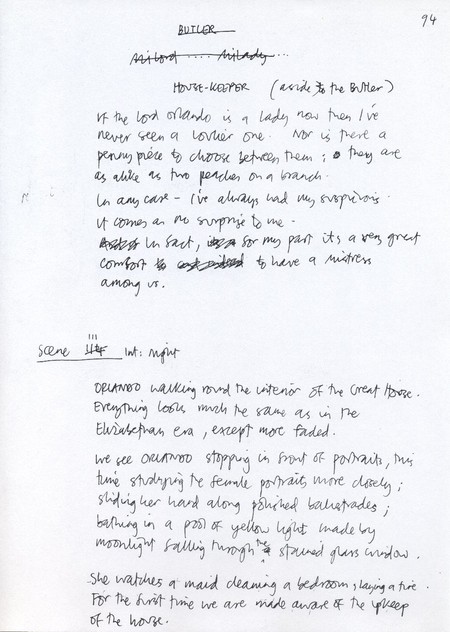 94
BUTLER
Milord .... Milady ...
HOUSE-KEEPER (aside to the BUTLER)
If the Lord Orlando is a lady now then I've
never seen a lovlier one. Nor is there a
penny piece to choose between them; they are
as alike as two peaches on a branch.
In any case - I've always had my suspicions.
It comes as no surprise to me.
In fact, for my part its a very great
comfort to have a mistress
among us.
Scene 111 Int: night
ORLANDO walking round the interior of the Great House.
Everything looks much the same as in the
Elizabethan era, except more faded.
We see ORLANDO stopping in front of portraits, this
time studying the female portraits more closely;
sliding her hand along polished balustrades;
bathing in a pool of yellow light made by
moonlight falling through the stained glass window.
She watches a maid cleaning a bedroom, laying a fire.
For the first time we are made aware of the upkeep
of the house.